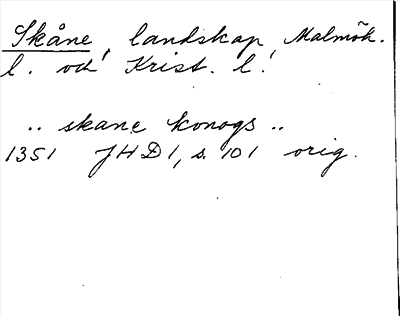 Skåne, landskap, Malmöh.
l. och Krist. l.
.. skane konogs ..
1351 JHD 1, s. 101 orig.